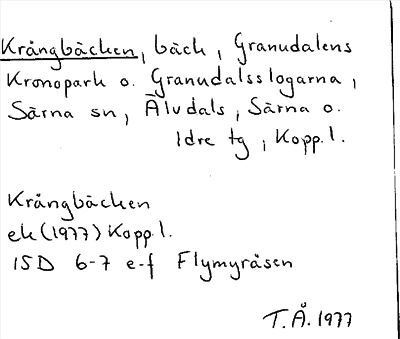 Krångbäcken, bäck, Granudalens
Kronopark o. Granudalsslogarna,
Särna sn, Älvdals, Särna o.
Idre tg, Kopp.l.
Krångbäcken
ek(1977) Kopp.l.
15D 6-7 e-f Flymyråsen
T.Å. 1977